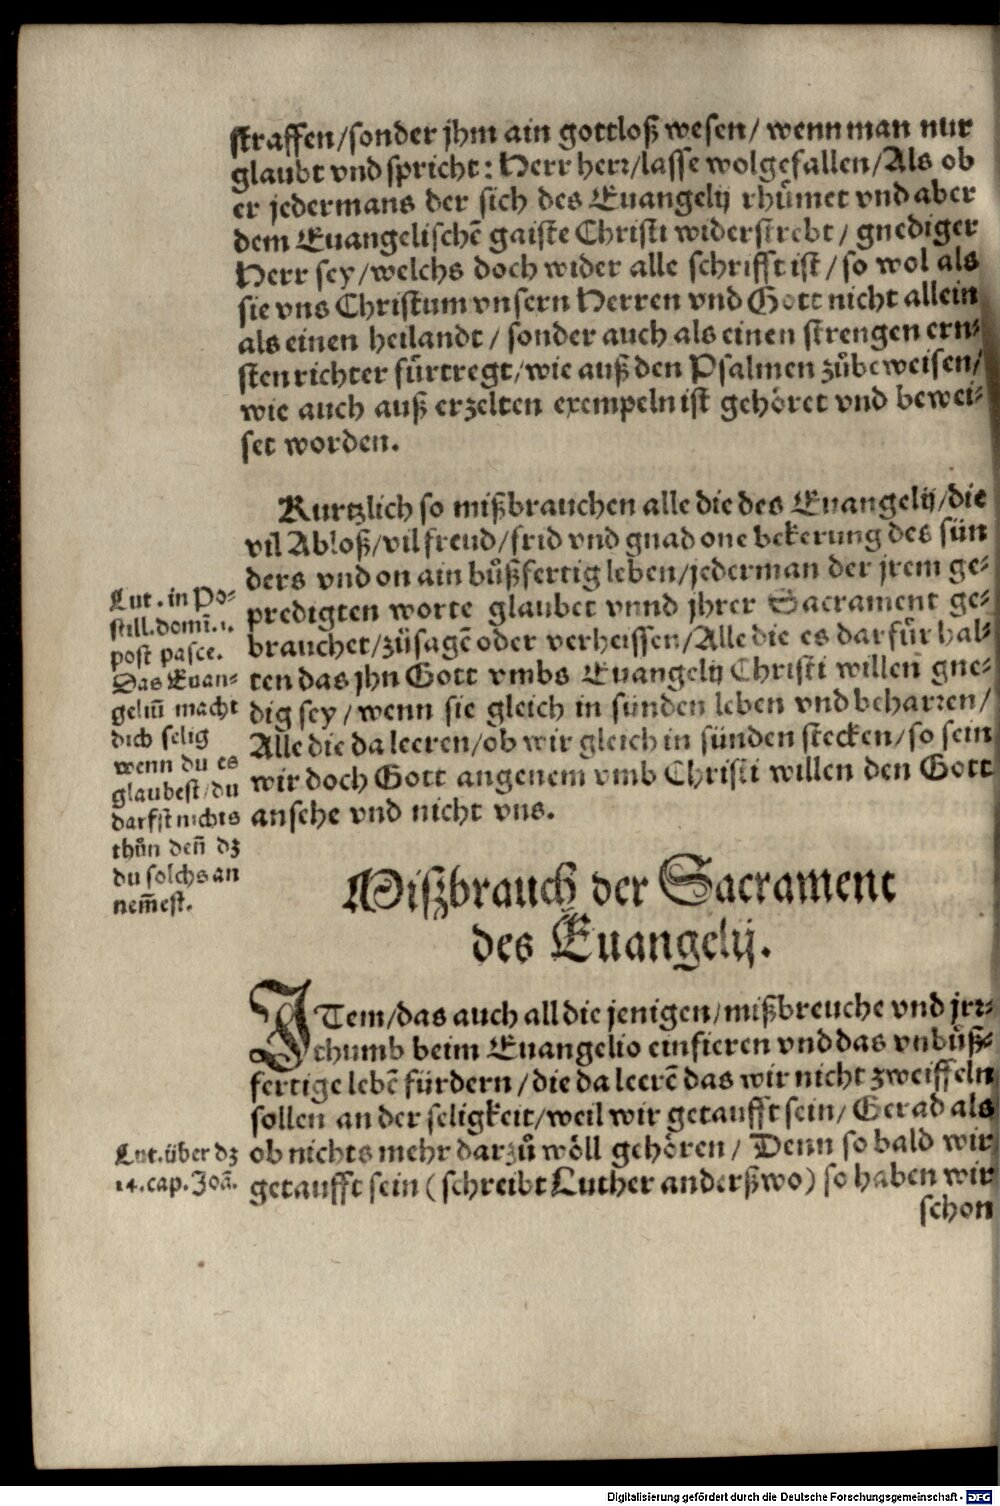 straffen/sonder jhm ain gottloß wesen/ wenn man nur
glaubt vnd spricht: Herr herr/lasse wolgefallen/Als ob
er jedermans der sich des Euangelij rhuͤmet vnd aber
dem Euangelischē gaiste Christi widerstrebt/ gnediger
Herr sey/welchs doch wider alle schrifft ist/ so wol als
sie vns Christum vnsern Herren vnd Gott nicht allein
als einen heilandt/ sonder auch als einen strengen ern⸗
sten richter fuͤrtregt/wie auß den Psalmen zuͦbeweisen/
wie auch auß erzelten exempeln ist gehoͤret vnd bewei⸗
set worden.
Kurtzlich so mißbrauchen alle die des Euangelij/die
vil Abloß/vil freud/frid vnd gnad one bekerung des sün
ders vnd on ain buͦßfertig leben/jederman der jrem ge⸗
predigten worte glaubet vnnd jhrer Sacrament ge⸗
brauchet/zuͦsagē oder verheissen/Alle die es darfuͤr hal⸗
ten das jhn Gott vmbs Euangelij Christi willen gne⸗
dig sey/wenn sie gleich in sünden leben vnd beharren/
Alle die da leeren/ob wir gleich in sünden stecken/so sein
wir doch Gott angenem vmb Christi willen den Gott
ansehe vnd nicht vns.
Lut. in Po⸗
still. domī. 1.
post pasce.
Das Euan⸗
geliū macht
dich selig
wenn du es
glaubest/du
darfst nichts
thuͦn deñ dz
du solchs an
nem̄est.
Mißbrauch der Sacrament
des Euangelij.
ITem/das auch all die jenigen/mißbreuche vnd jrr⸗
thumb beim Euangelio einfieren vnd das vnbuͦß⸗
fertige lebē fürdern/die da leerē das wir nicht zweiffeln
sollen an der seligkeit/weil wir getaufft sein/ Gerad als
ob nichts mehr darzuͦ woͤll gehoͤren/ Denn so bald wir
getaufft sein (schreibt Luther anderßwo) so haben wir
Lut. über dz
14. cap. Joā.
schon
Digitalisierung gefördert durch die Deutsche Forschungsgemeinschaft - DFG